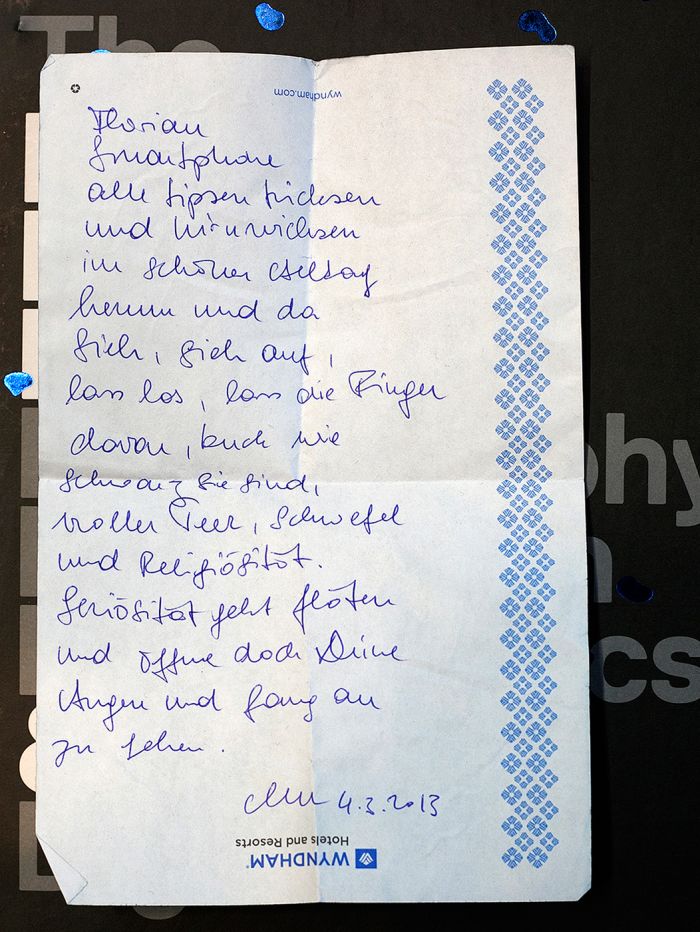 The
wyndham.com
Florian
Smartphone
alle tipsen tricksen
und hirnwichsen
im schönen Alltag
herum und da
Sieh, sieh auf,
lass los, lass die Finger
davon, kuck wie
schwarz sie sind,
voller Teer, Schwefel
und Religiösität.
Seriösität geht flöten
und öffne doch Deine
Augen und fang an
zu sehen.
4.3.2013
WYNDHAM
Hotels and Resorts
phy
n
cs
&